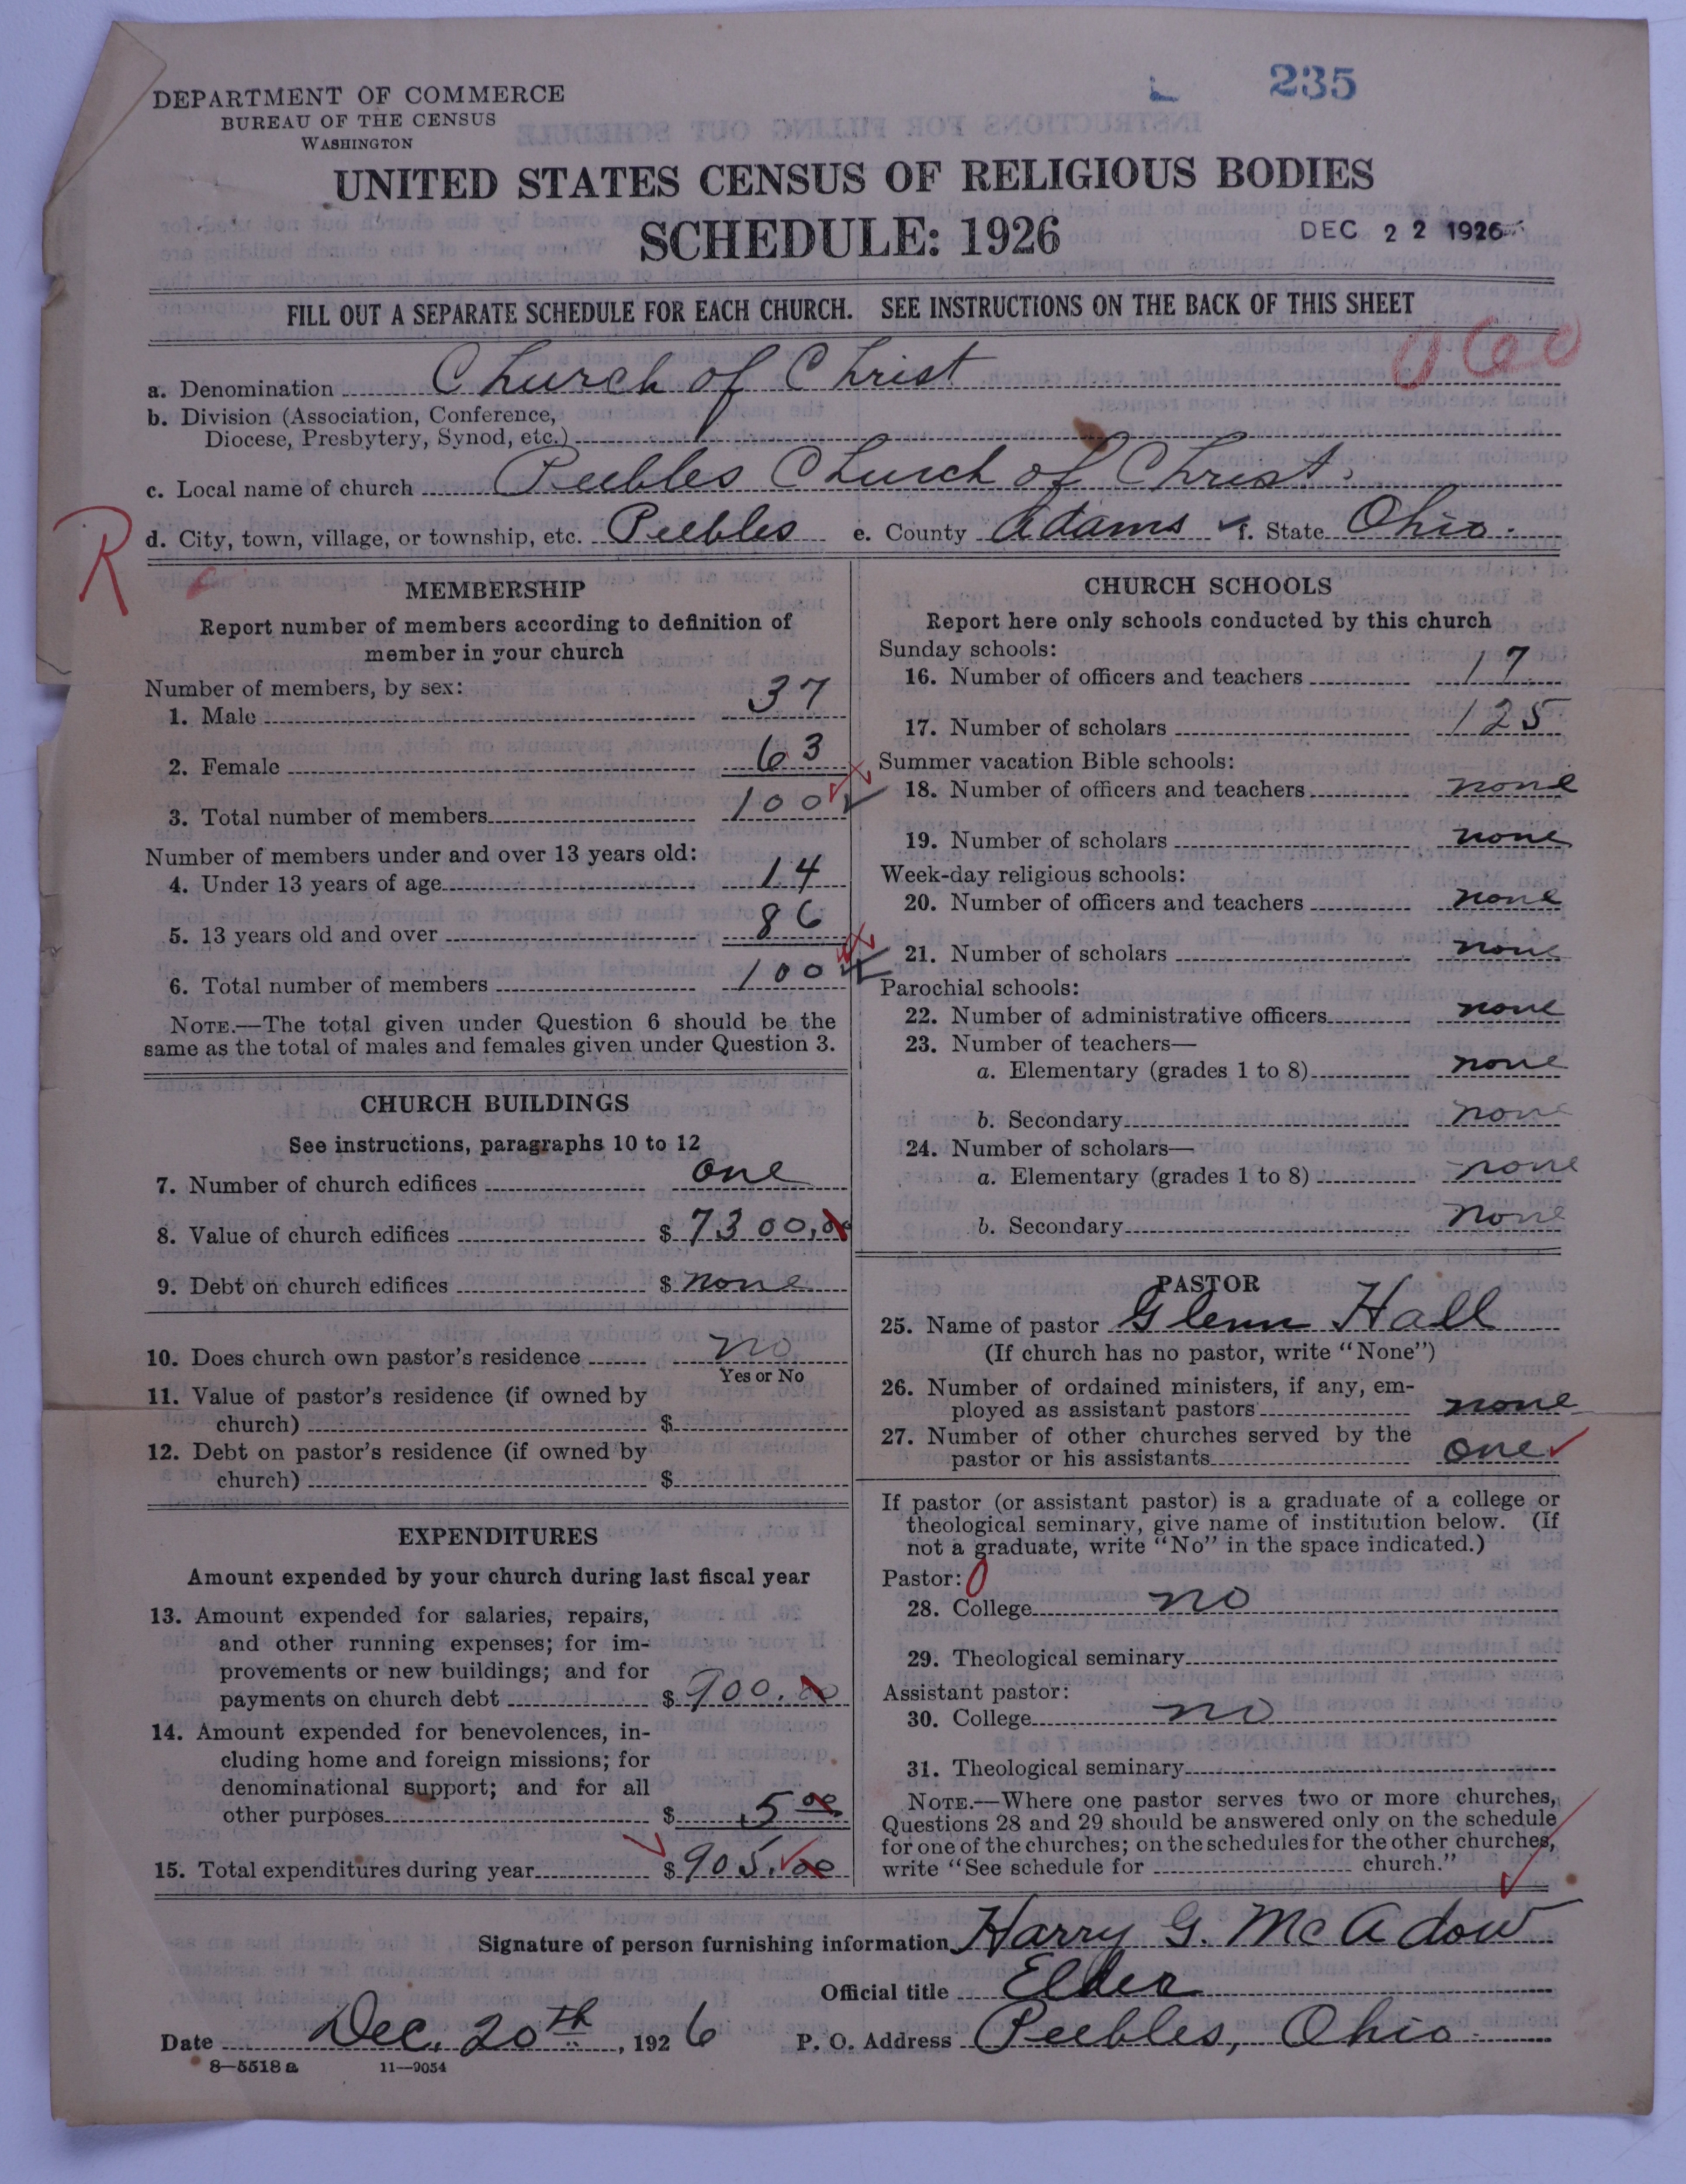 235
DEPARTMENT OF COMMERCE
BUREAU OF THE CENSUS
WASHINGTON
UNITED STATES CENSUS OF RELIGIOUS BODIES
SCHEDULE: 1926
DEC 22 1926
FILL OUT A SEPARATE SCHEDULE FOR EACH CHURCH. SEE INSTRUCTIONS ON THE BACK OF THIS SHEET
a. Denomination Church of Christ
b. Division (Association, Conference,
Diocese, Presbytery, Synod, etc.)
c. Local name of church Peebles Church of Christ.
R
d. City, town, village, or township, etc. Peebles e. County Adams f. State Ohio.
MEMBERSHIP
Report number of members according to definition of
member in your church
Number of members, by sex:
1. Male 37
2. Female 63
3. Total number of members 100
Number of members under and over 13 years old:
4. Under 13 years of age 14
5. 13 years old and over 86
6. Total number of members 100
NOTE.—The total given under Question 6 should be the
same as the total of males and females given under Question 3.
CHURCH BUILDINGS
See instructions, paragraphs 10 to 12
7. Number of church edifices one
8. Value of church edifices $ 7300.00
9. Debt on church edifices $ none
10. Does church own pastor's residence no
Yes or No
11. Value of pastor's residence (if owned by
church) $
12. Debt on pastor's residence (if owned by
church) $
EXPENDITURES
Amount expended by your church during last fiscal year
13. Amount expended for salaries, repairs,
and other running expenses; for im-
provements or new buildings; and for
payments on church debt $ 900.00
14. Amount expended for benevolences, in-
cluding home and foreign missions; for
denominational support; and for all
other purposes $ 5 00
15. Total expenditures during year $ 905.00
CHURCH SCHOOLS
Report here only schools conducted by this church
Sunday schools:
16. Number of officers and teachers 17
17. Number of scholars 125
Summer vacation Bible schools:
18. Number of officers and teachers none
19. Number of scholars none
Week-day religious schools:
20. Number of officers and teachers none
21. Number of scholars none
Parochial schools:
22. Number of administrative officers none
23. Number of teachers—
a. Elementary (grades 1 to 8) none
b. Secondary none
24. Number of scholars—
a. Elementary (grades 1 to 8) none
b. Secondary none
PASTOR
25. Name of pastor Glenn Hall
(If church has no pastor, write "None")
26. Number of ordained ministers, if any, em-
ployed as assistant pastors none
27. Number of other churches served by the
pastor or his assistants one
If pastor (or assistant pastor) is a graduate of a college or
theological seminary, give name of institution below. (If
not a graduate, write "No" in the space indicated.)
Pastor: 0
28. College no
29. Theological seminary
Assistant pastor:
30. College no
31. Theological seminary
NOTE.—Where one pastor serves two or more churches,
Questions 28 and 29 should be answered only on the schedule
for one of the churches; on the schedules for the other churches,
write "See schedule for church."
Signature of person furnishing information Harry G. McAdow
Official title Elder
Date Dec. 20th, 1926 P. O. Address Peebles, Ohio.
8—5518a 11—9054